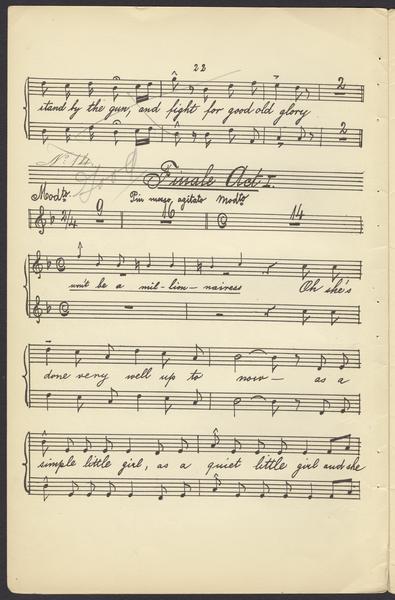 22
2
stand by the gun, and fight for good old glory
2
No. 14.
Good
Finale Act I.
Modto. Piu mosso, agitato Modto
2/4 9 16 C 14
won't be a mil-lion-nairess Oh she's
done very well up to now — as a
simple little girl, as a quiet little girl and she